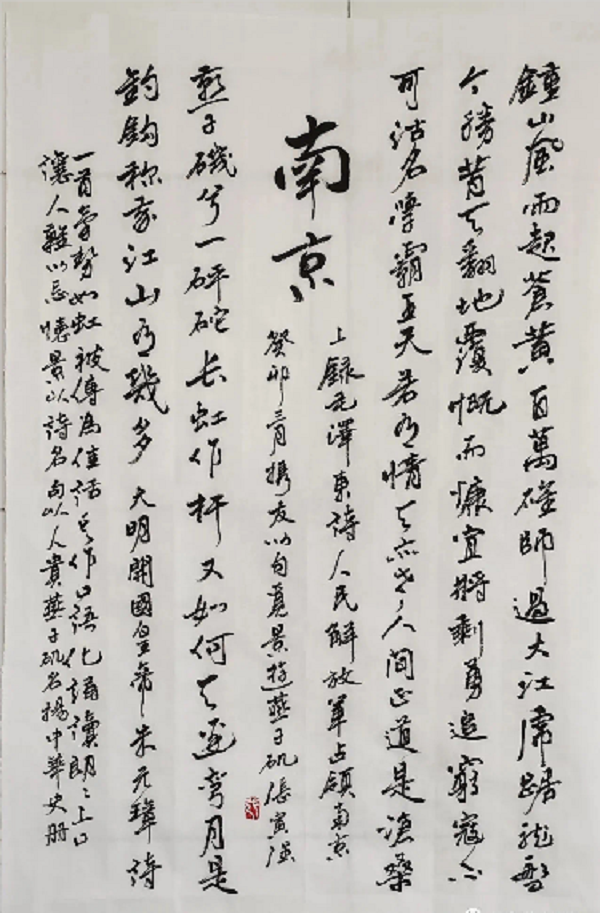 鍾山風雨起蒼黄百萬雄師過大江虎踞龙盤
今勝昔天翻地覆慨而慷宜將剩勇追窮寇不
可沽名學霸王天若有情天亦老人间正道是滄桑
南京
上録毛澤東詩人民解放軍占領南京
癸卯三月攜友以句覓景遊燕子矶張寅强
燕子磯兮一砰砣长虹作杆又如何天邊弯月是
釣鈎称我江山有幾多 大明開國皇帝朱元璋詩
一首氣势如虹被傳為佳話其作口語化誦讀朗々上口
讓人難以忘憶景以詩名句以人貴燕子矶名揚中華史册